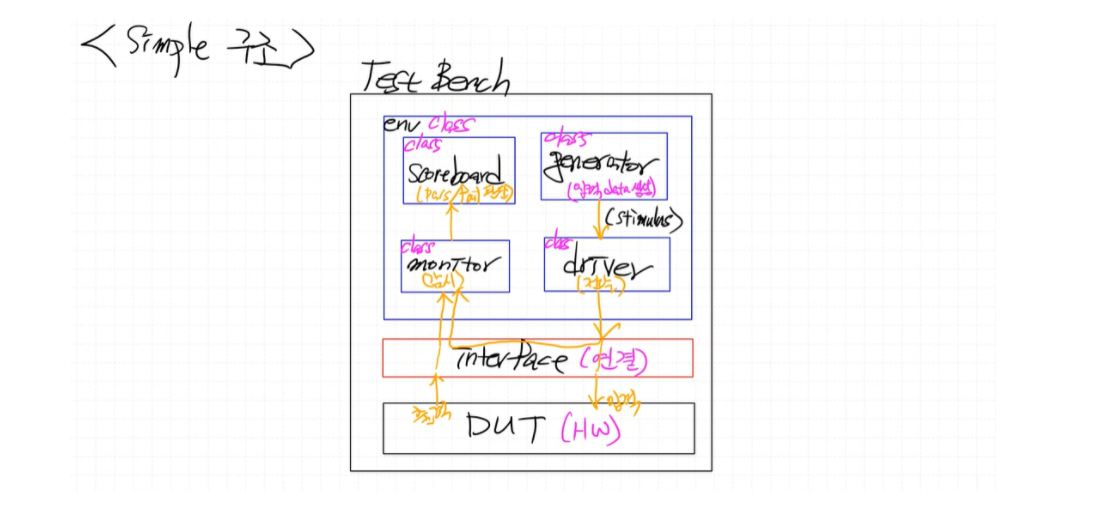 <Simple 구조>
Test Bench
env class
class
scoreboard
(pass/fail 판정)
class
generator
(입력 data 생성)
(stimulus)
class
monitor
(감시)
class
driver
interface (연결)
출력
입력
DUT (HW)